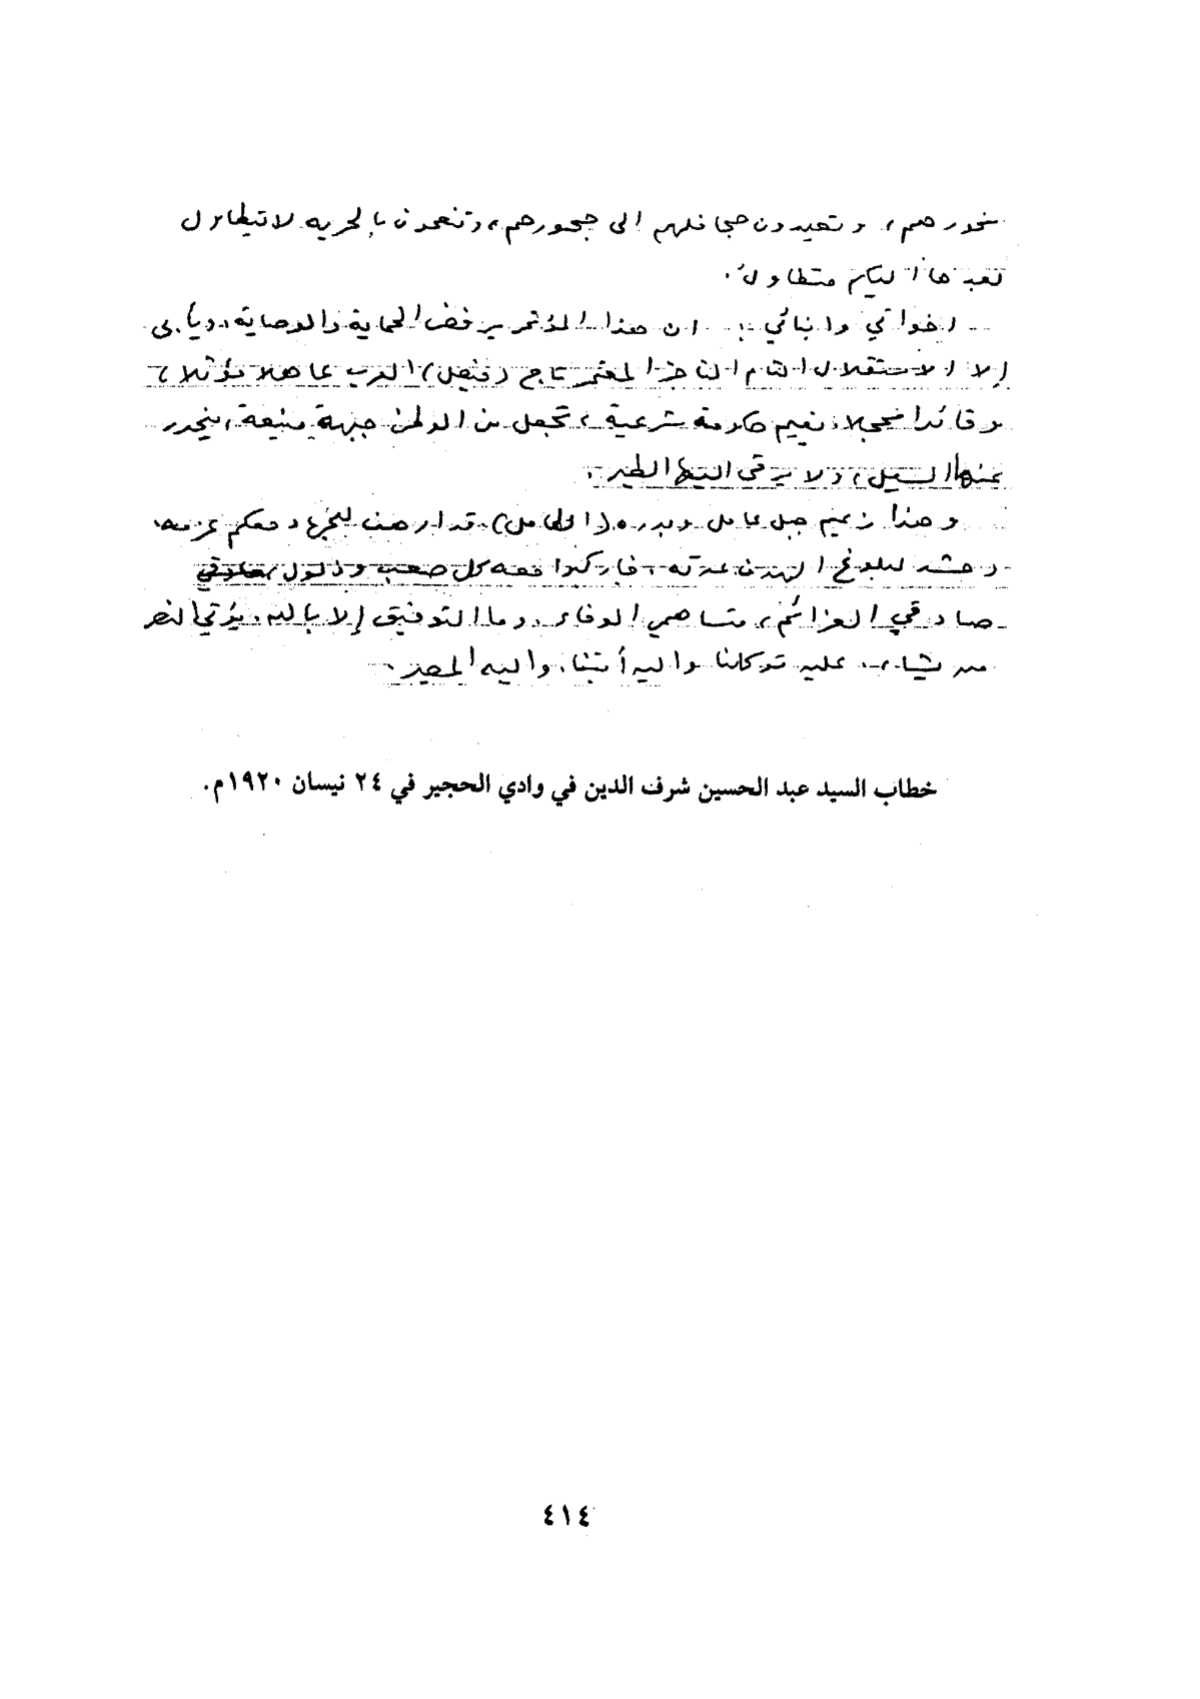 نحورهم، وتعيدون حجافلهم الى جحورهم، وتنعمون بالحريه لا تيطاول
بعدها اليكم متطاول.
اخواتي وابنائي: ان هذا المؤتمر يرفض الحماية والوصاية، ويأبى
إلا الاستقلال التام الناجز المعتمر تاج (فيصل) العرب عاهلا مؤثلا،
وقائدا محجلا، نقيم حكومة شرعية، تجعل من الوطن جبهة منيعة، ينحدر
عنها السيل، ولا يرقى اليها الطير.
وهذا زعيم جبل عامل وبدره (الكامل)، قد ارصف ليجرد معكم عزمه،
وحشد لبلوغ الهدف عدته، فاركبوا معه كل صعب وذلول،
صادقي العزائم، متساهمي الوفاء، وما التوفيق إلا بالله، يؤتي النصر
من يشاء، عليه توكلنا واليه أنبنا، واليه المصير.
خطاب السيد عبد الحسين شرف الدين في وادي الحجير في ٢٤ نيسان ١٩٢٠م.
٤١٤